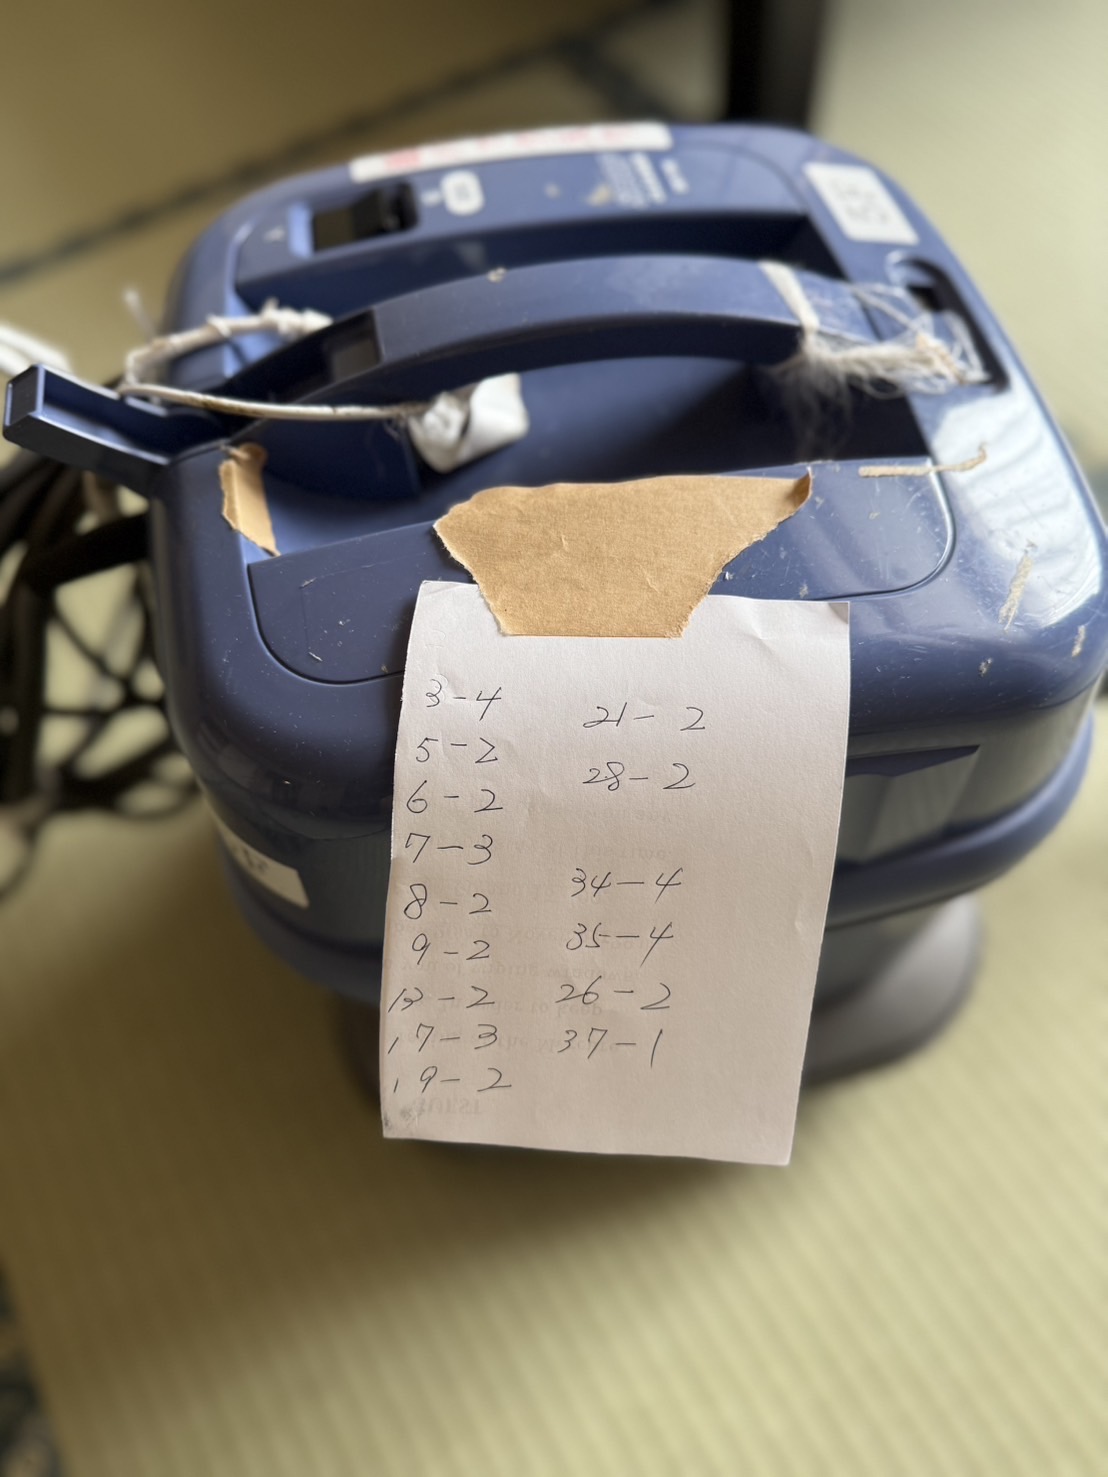 3-4
5-2
6-2
7-3
8-2
9-2
13-2
17-3
19-2
21-2
28-2
34-4
35-4
26-2
37-1